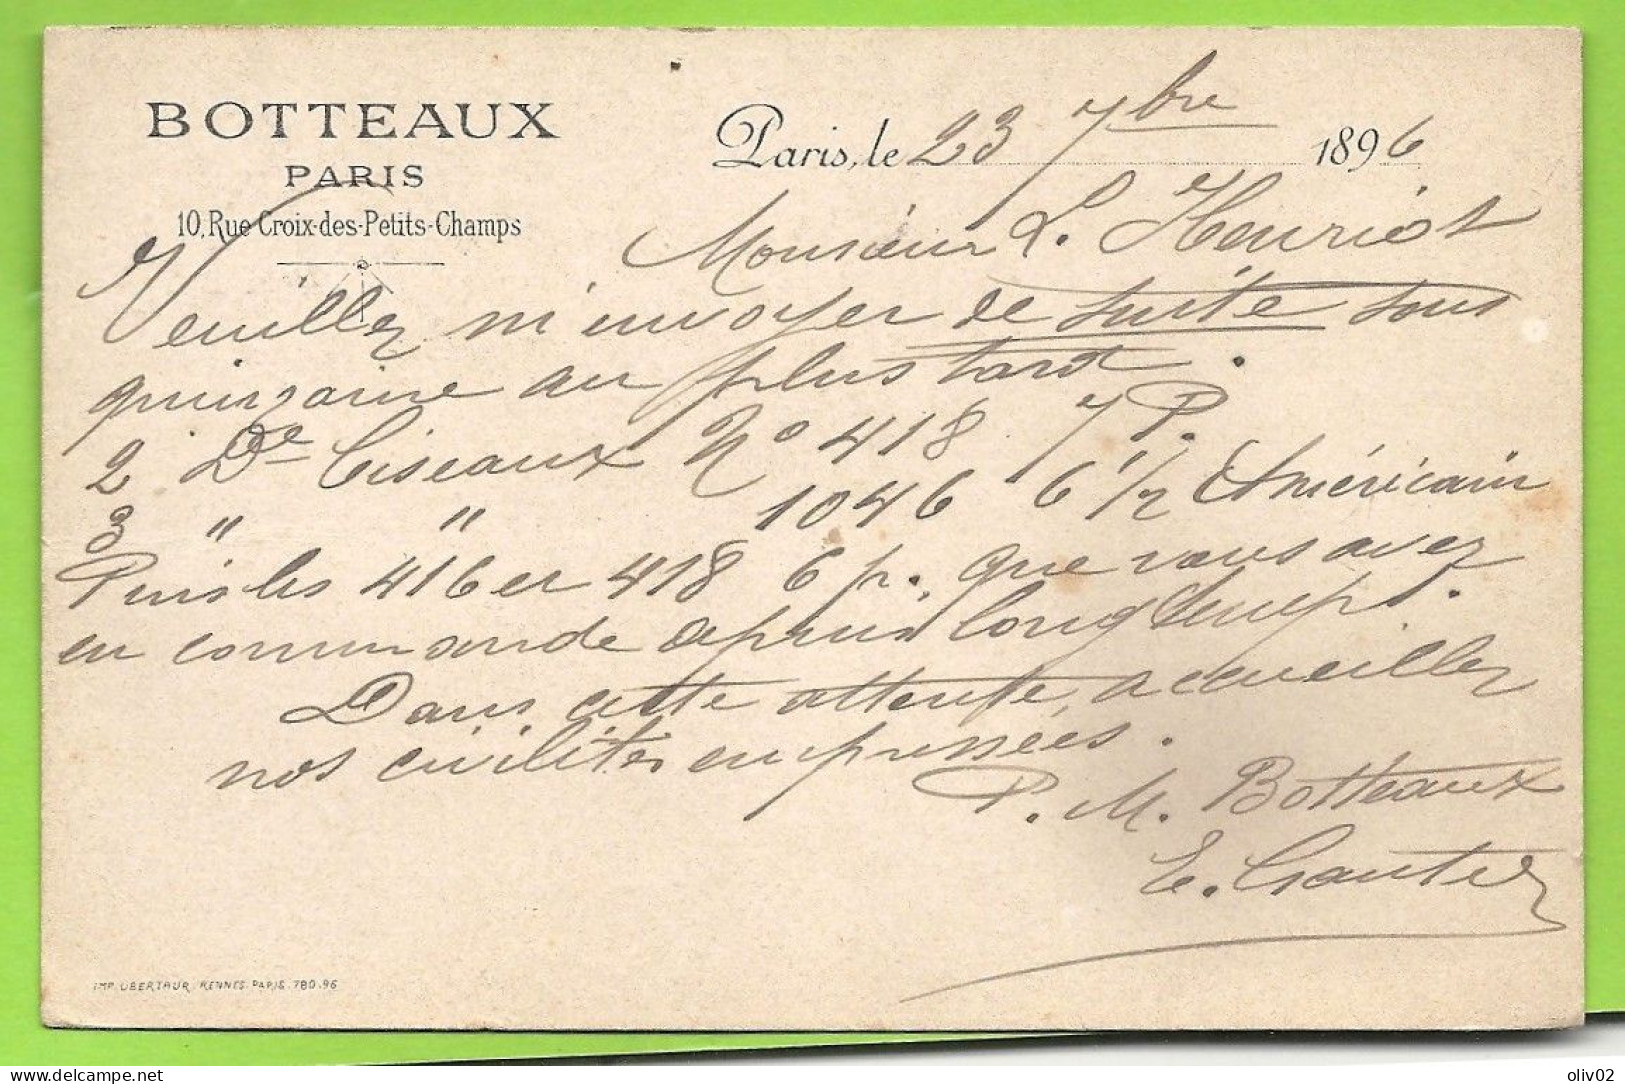 BOTTEAUX
PARIS
10, Rue Croix-des-Petits-Champs
Paris, le 23 7bre 1896
Monsieur L. Henriot
Veuillez m'envoyer de suite sous
quinzaine au plus tard.
2 Dz Ciseaux No 418 7 P.
3 " " 1046 6 1/2 Américain
Puis les 416 et 418 6 p. que vous avez
en commande depuis longtemps.
Dans cette attente, accueillez
nos civilités empressées.
P. M. Botteaux
E. Gautier
IMP. UBERTHUR, RENNES-PARIS. 780-96
oliv02